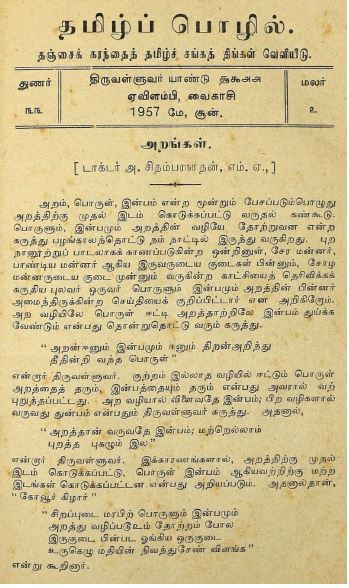 தமிழ்ப் பொழில்.
தஞ்சைக் கரந்தைத் தமிழ்ச் சங்கத் திங்கள் வெளியீடு.
துணர்
௩௩
திருவள்ளுவர் யாண்டு ௧௯௮௮
ஏவிளம்பி, வைகாசி
1957 மே, சூன்.
மலர்
௨
அறங்கள்.
[ டாக்டர் அ. சிதம்பரநாதன், எம். ஏ., ]
அறம், பொருள், இன்பம் என்ற மூன்றும் பேசப்படும்பொழுது
அறத்திற்கு முதல் இடம் கொடுக்கப்பட்டு வருதல் கண்கூடு.
பொருளும், இன்பமும் அறத்தின் வழியே தோற்றுவன என்ற
கருத்து பழங்காலந்தொட்டு நம் நாட்டில் இருந்து வருகிறது. புற
நானூற்றுப் பாடலாகக் காணப்படுகின்ற ஒன்றினுள், சேர மன்னர்,
பாண்டிய மன்னர் ஆகிய இருவருடைய குடைகள் பின்னும், சோழ
மன்னருடைய குடை முன்னும் வருகின்ற காட்சியைத் தெரிவிக்கக்
கருதிய புலவர் ஒருவர் பொருளும் இன்பமும் அறத்தின் பின்னர்
அமைந்திருக்கின்ற செய்தியைக் குறிப்பிட்டார் என அறிகிறோம்.
அற வழியிலே பொருள் ஈட்டி அறத்தாற்றிலே இன்பம் துய்க்க
வேண்டும் என்பது தொன்றுதொட்டு வரும் கருத்து.
" அறன்ஈனும் இன்பமும் ஈனும் திறன்அறிந்து
தீதின்றி வந்த பொருள் "
என்றார் திருவள்ளுவர். குற்றம் இல்லாத வழியில் ஈட்டும் பொருள்
அறத்தைத் தரும், இன்பத்தையும் தரும் என்பது அவரால் வற்
புறுத்தப்பட்டது. அற வழியால் விளைவதே இன்பம்; பிற வழிகளால்
வருவது துன்பம் என்பதும் திருவள்ளுவர் கருத்து. அதனால்,
" அறத்தான் வருவதே இன்பம்; மற்றெல்லாம்
புறத்த புகழும் இல "
என்றார் திருவள்ளுவர். இக்காரணங்களால், அறத்திற்கு முதல்
இடம் கொடுக்கப்பட்டு, பொருள் இன்பம் ஆகியவற்றிற்கு மற்ற
இடங்கள் கொடுக்கப்பட்டன என்பது அறியப்படும். அதனால்தான்,
" கோவூர் கிழார் "
" சிறப்புடை மரபிற் பொருளும் இன்பமும்
அறத்து வழிப்படூஉம் தோற்றம் போல
இருகுடை பின்பட ஓங்கிய ஒருகுடை
உருகெழு மதியின் நிவந்துசேண் விளங்க "
என்று கூறினார்.